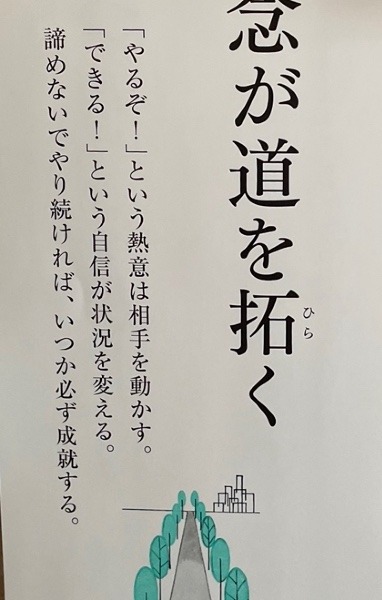 念が道を拓く
ひら
「やるぞ！」という熱意は相手を動かす。
「できる！」という自信が状況を変える。
諦めないでやり続ければ、いつか必ず成就する。